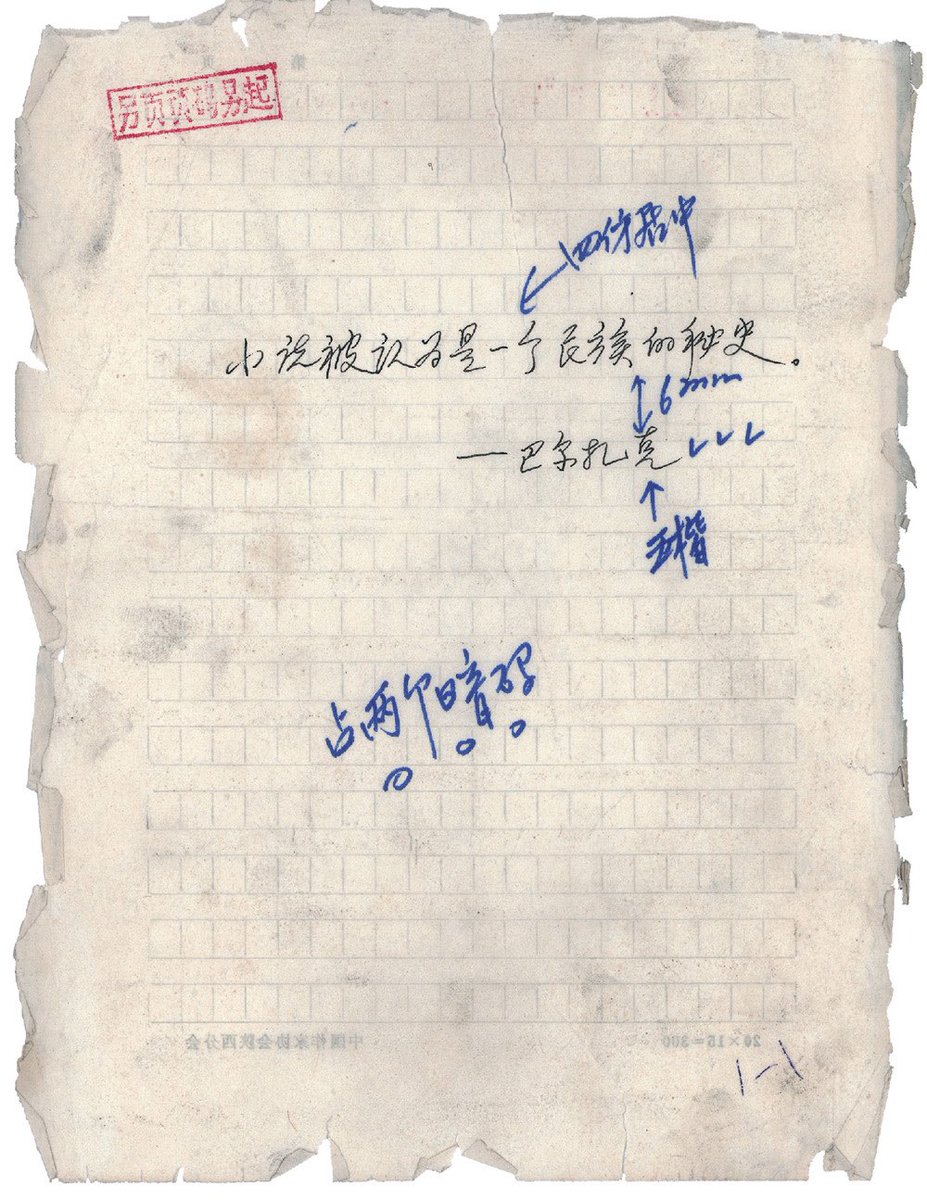 第 页
另页页码另起
四仿居中
小说被认为是一个民族的秘史。
6mm
—巴尔扎克
五楷
占两个暗码
20×15=300
中国作家协会陕西分会
1-1